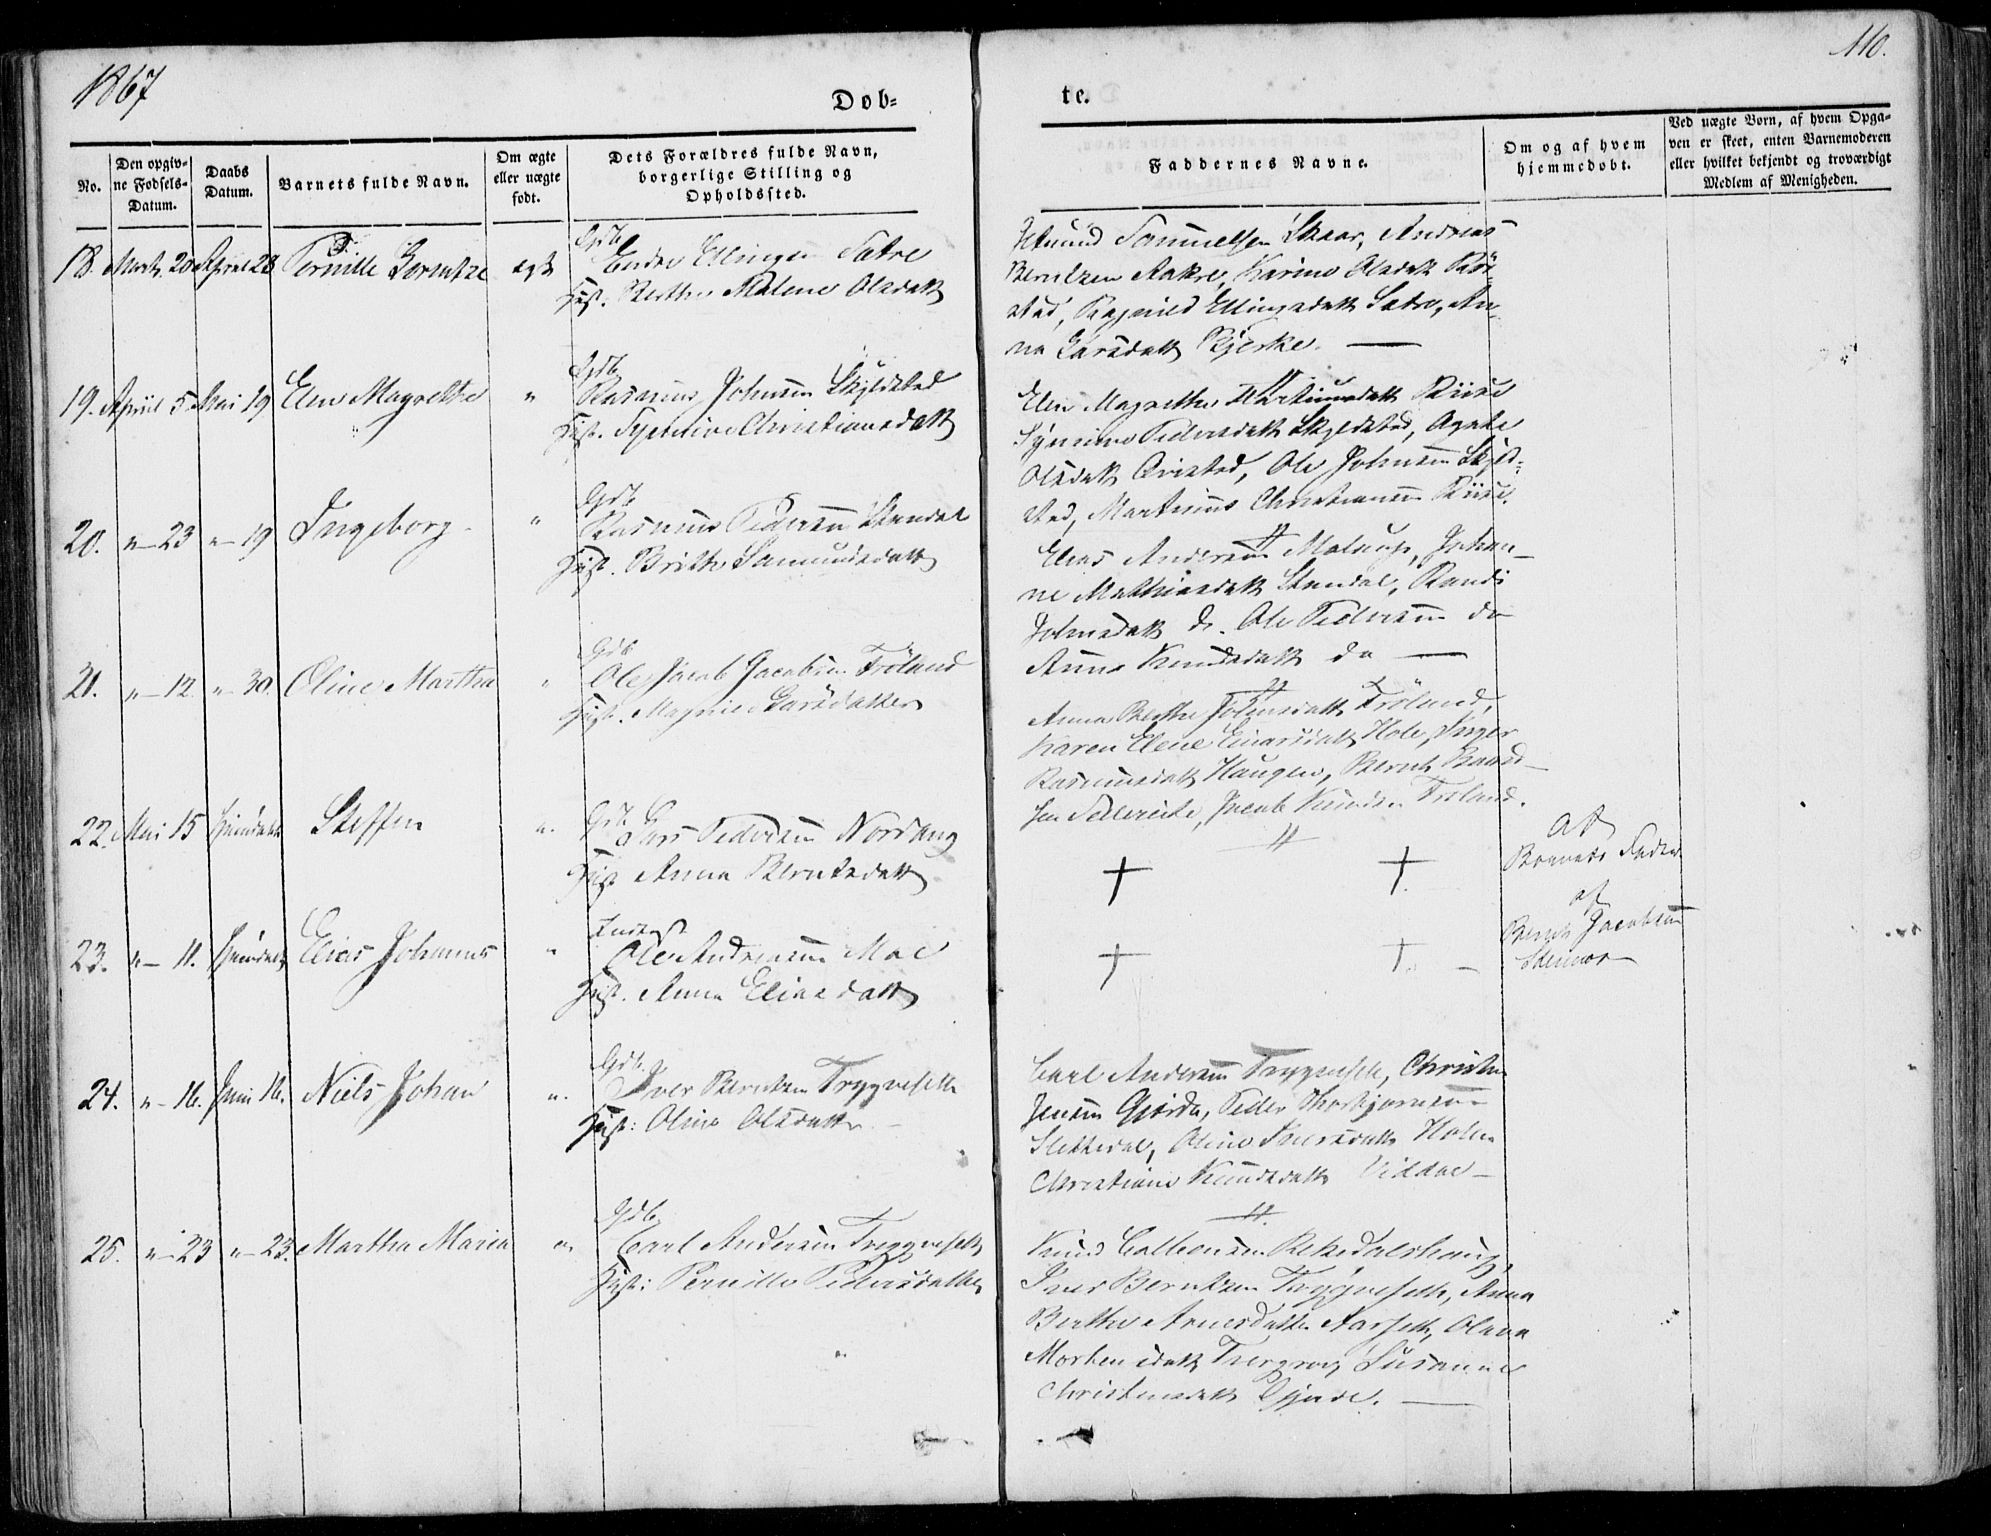 1867
110.
Dob-
te.
No.
Den opgiv-
ne Fodsels-
Datum.
Daabs
Datum.
Barnets fulde Navn.
Om ægte
eller uægte
født.
Dets Forældres fulde Navn,
borgerlige Stilling og
Opholdssted.
Faddernes Navne.
Om og af hvem
hjemmedøbt.
Ved uægte Børn, af hvem Opga-
ven er skeet, enten Barnemoderen
eller hvilket bekjendt og troværdigt
Medlem af Menigheden.
18. Marts 20 April 28 Pernille Lorentze ægte
Gdb.
Endre Ellingsen Satre
Hust. Berthe Malene Olsdatt
Samuelsen Skaar, Andreas
Berntzen Aakre, Karine Olsdatt
stad, Ragnild Ellingsdatt Satre, An-
na Larsdatt Bjerke. —
19. April 5 Mai 19 Elen Magrethe "
Gdb.
Rasmus Johnsen Skyldstad
Hust. Synnive Christiansdatt
Elen Magrethe Martinusdatt Riise
Synnive Pedersdatt Skyldstad, Agate
Olsdatt Qvistad, Ole Johnsen Skyld-
stad, Martinus Christiansen Riise.
20. "— 23 "— 19 Ingeborg "
Gdb.
Rasmus Pedersen Standal
Hust. Brithe Samundsdatt
Elias Andersen Molaup, Johan-
ne Mathiasdatt Standal, Randi
Johnsdatt do. Ole Pedersen do
Anna Knudsdatt do —
21. "— 12 "— 30. Oline Martha "
Gdb
Ole Jacob Jacobsen Tröland
Hust. Magnie Larsdatter
Anna Berthe Johnsdatt Tröland,
Karen Elene Einarsdatt Hole, Inger
Rasmusdatt Haugen, Bernt Baard-
sen, Jacob Knudsen Tröland.
22. Mai 15 Steffen "
Gdb.
Lars Pedersen Nordang
Hust Anna Berntsdatt
af
Barnets Fader
23. "— 11. Elias Johannes "
Inderst
Ole Andreasen Moe
Hust. Anna Eliasdatt
af
Bernt Jacobsen
24. "— 16. Juni 16. Niels Johan "
Gdb.
Iver Berntzen Tryggeseth
Hust: Oline Olsdatt
Carl Andersen Tryggeseth, Christen
Jensen Gjørde, Peder Thorbjørnsen
Slettedal, Oline Iversdatt Holen
Christiane Knudsdatt Viddal —
25. "— 23 "— 23. Martha Maria "
Gdb.
Carl Andersen Tryggeseth
Hust: Pernille Pedersdatter
Knud Colbensen Rekkedalshaug,
Iver Berntzen Tryggeseth, Anna
Berthe Arnesdatter Aarseth, Olave
Mortensdatt, Susanne
Christensdatt Gjørde. —